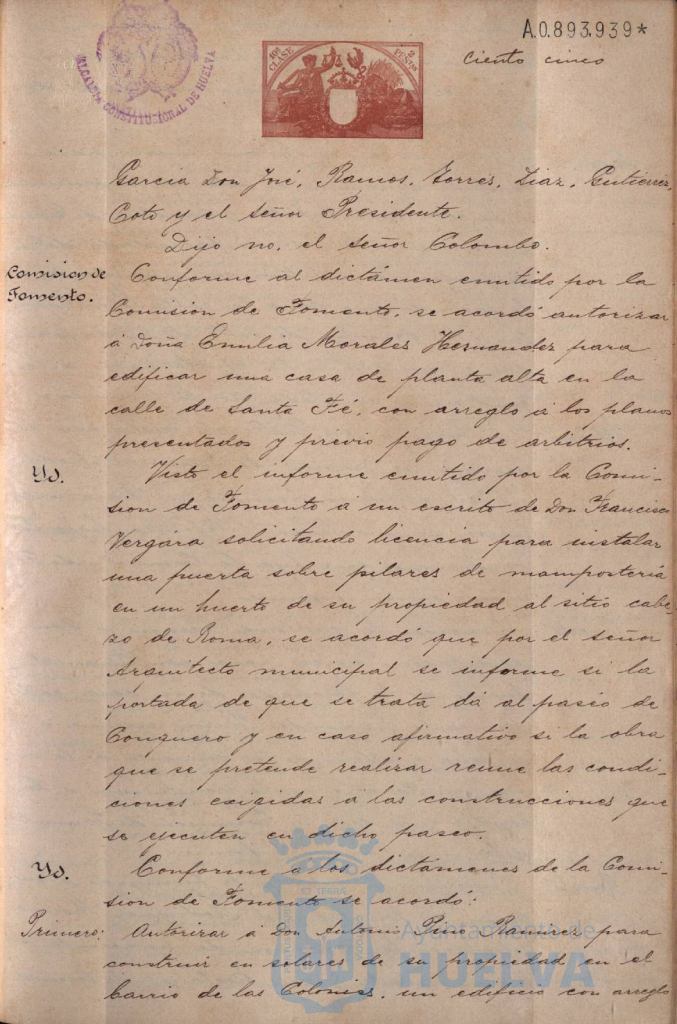 A.0.893.939*
ciento cinco
ALCALDIA CONSTITUCIONAL DE HUELVA
10ª CLASE
2 PESETAS
Garcia Don José, Ramos, Torres, Diaz, Gutierrez,
Coto y el señor Presidente.
Dijo no, el señor Colombo.
Comision de
Fomento.
Conforme al dictámen emitido por la
Comisión de Fomento, se acordó autorizar
á Doña Emilia Morales Hernandez para
edificar una casa de planta alta en la
calle de Santa Fé, con arreglo á los planos
presentados y previo pago de arbitrios.
Yd.
Visto el informe emitido por la Comi-
sion de Fomento á un escrito de Don Francisco
Vergára solicitando licencia para instalar
una puerta sobre pilares de mampostería
en un huerto de su propiedad al sitio cabe-
zo de Roma, se acordó que por el señor
Arquitecto municipal se informe si la
portada de que se trata dá al paseo de
Conquero y en caso afirmativo si la obra
que se pretende realizar reune las condi-
ciones exigidas á las construcciones que
se ejecuten en dicho paseo.
Yd.
Conforme a los dictámenes de la Comi-
sion de Fomento se acordó:
Primero:
Autorizar á Don Antonio Pino Ramirez para
construir en solares de su propiedad en el
barrio de las Colonias, un edificio con arreglo
Ayuntamiento de
HUELVA